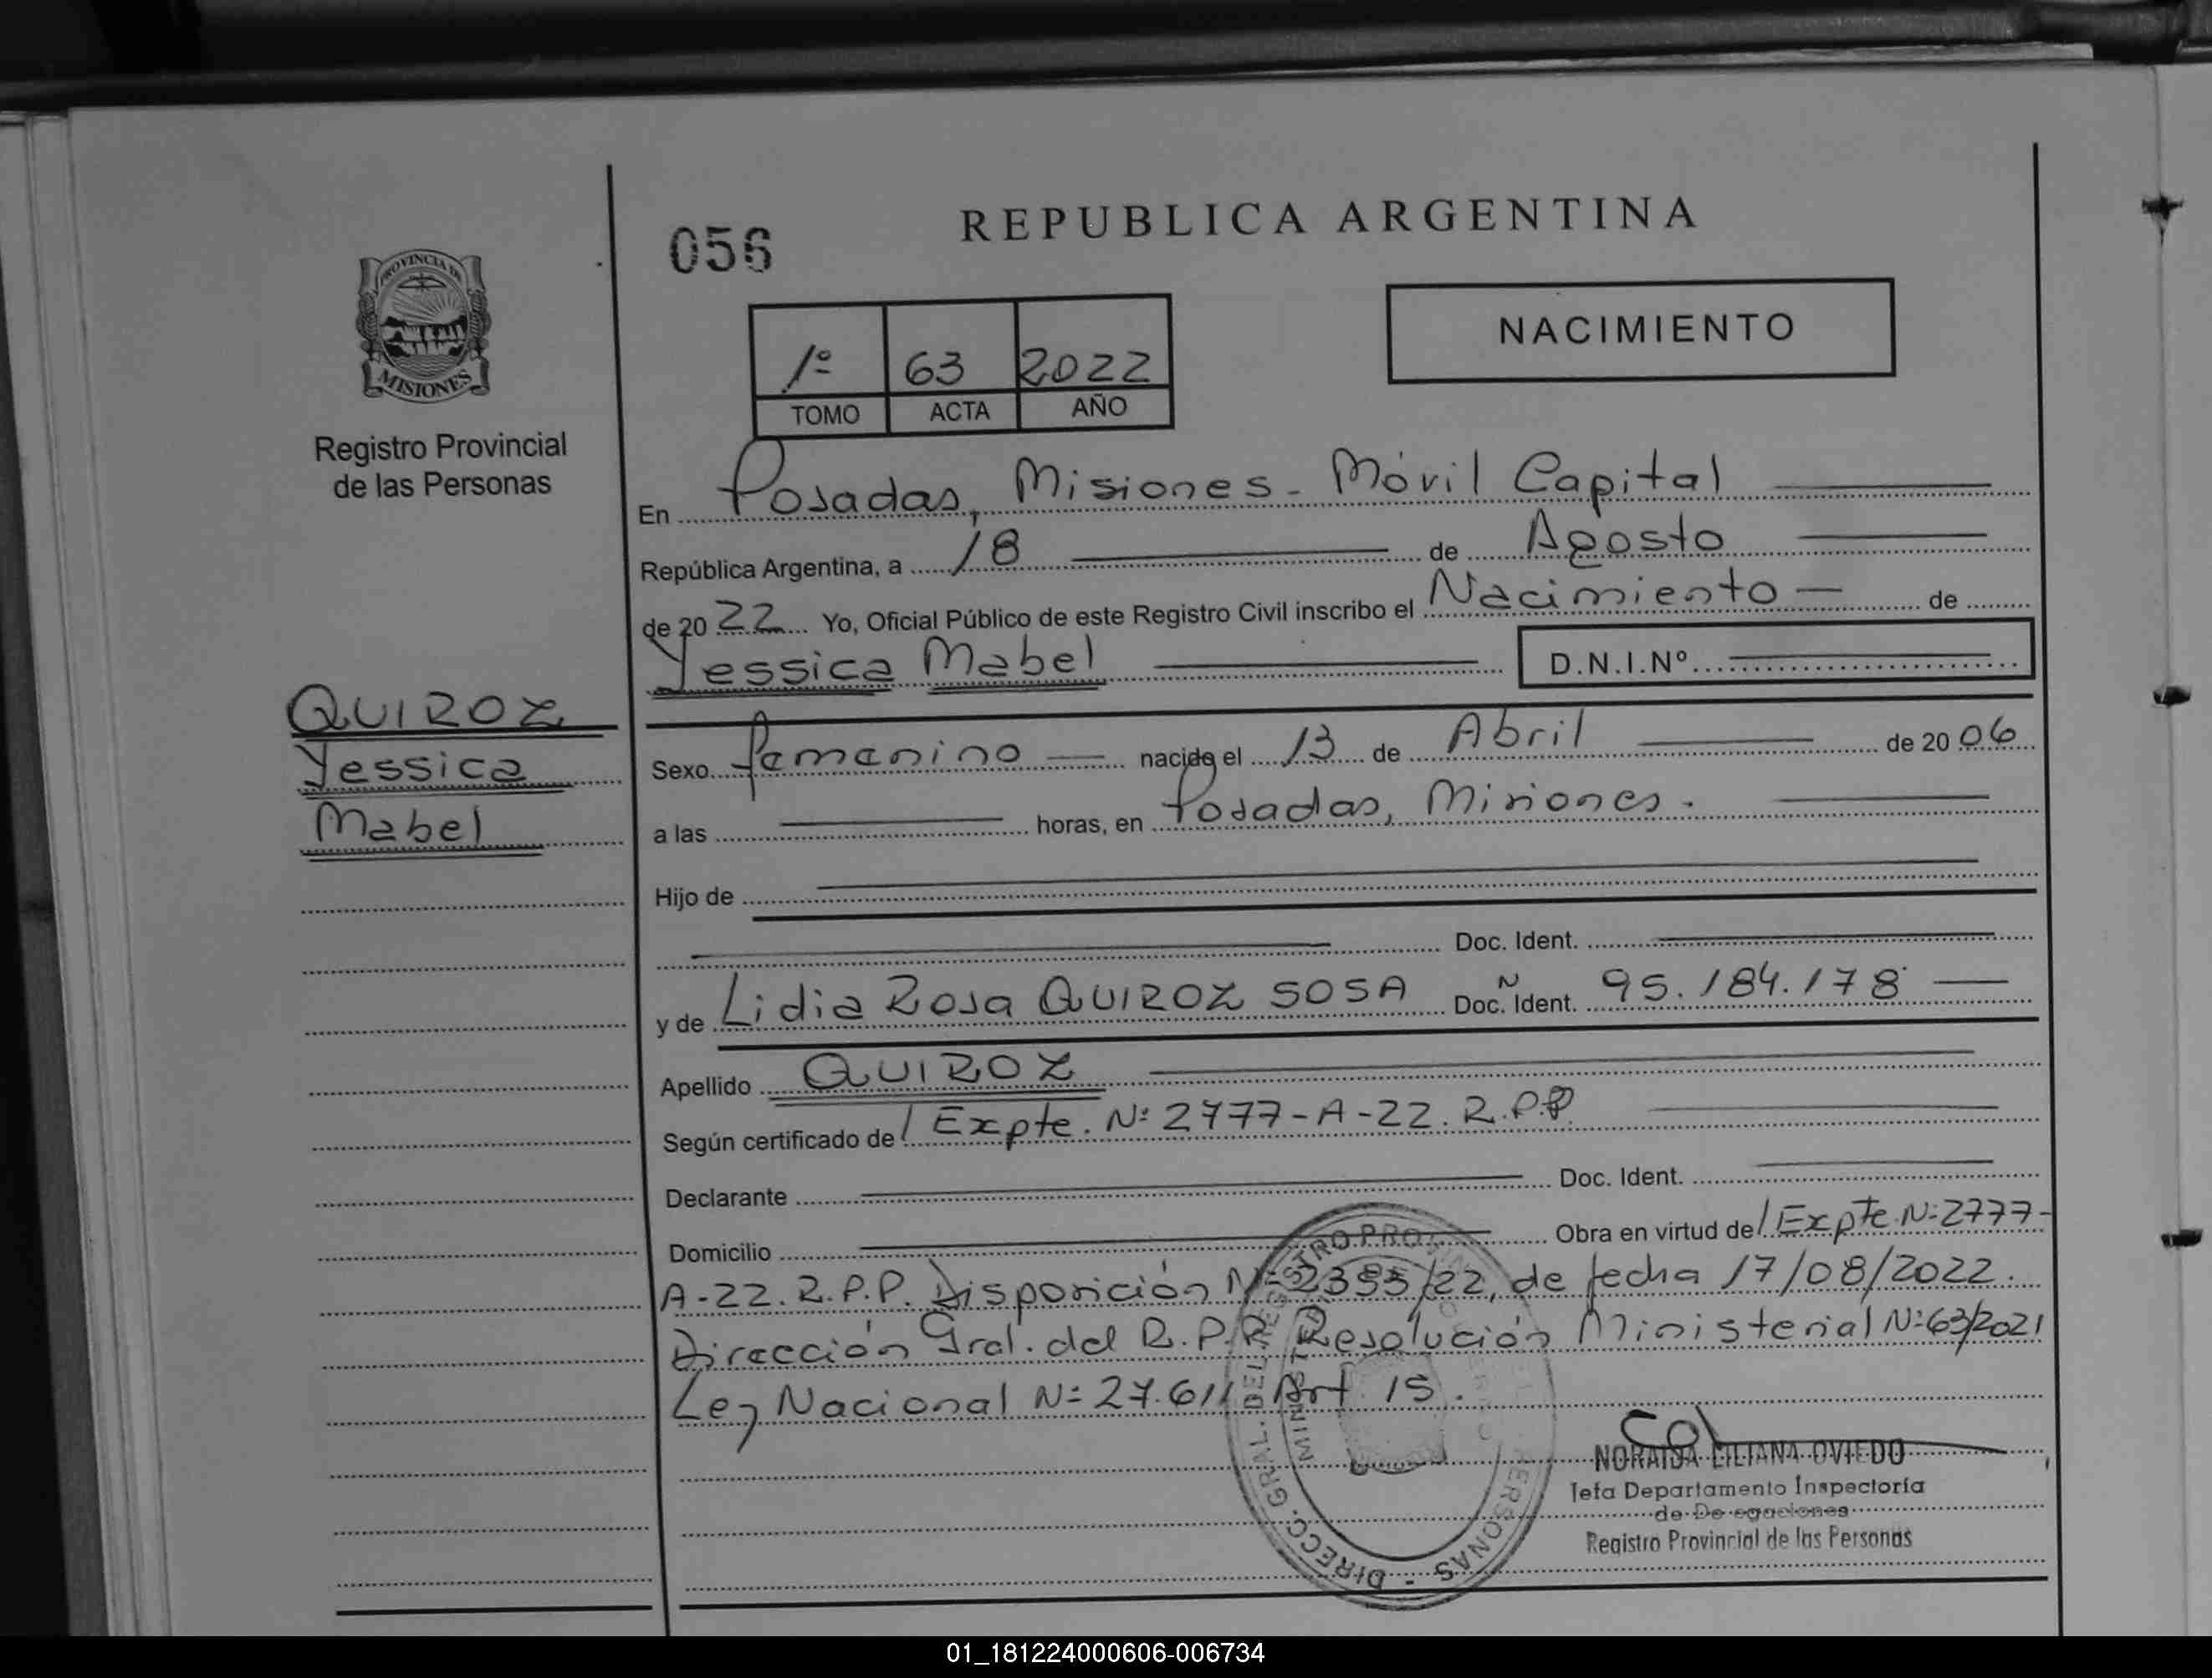 REPUBLICA ARGENTINA
056
NACIMIENTO
PROVINCIA DE
MISIONES
Registro Provincial
de las Personas
1º 63 2022
TOMO ACTA AÑO
En Posadas, Misiones - Móvil Capital
República Argentina, a 18 de Agosto
de 2022 Yo, Oficial Público de este Registro Civil inscribo el Nacimiento de
Yessica Mabel D.N.I.Nº
QUIROZ
Yessica
Mabel
Sexo femenino nacida el 13 de Abril de 2006
a las horas, en Posadas, Misiones.
Hijo de
Doc. Ident.
y de Lidia Rosa QUIROZ SOSA Doc. Ident. Nº 95.184.178
Apellido QUIROZ
Según certificado de / Expte. Nº 2777-A-22. R.P.P
Declarante Doc. Ident.
Domicilio Obra en virtud de / Expte. Nº 2777-
A-22. R.P.P. Disposición Nº /22, de fecha 17/08/2022.
Dirección Gral. del R.P.P. Resolución Ministerial Nº 63/2021
Ley Nacional Nº 27.611 Art 15.
NORAIDA LILIANA OVIEDO
Jefa Departamento Inspectoría
de De egaciones
Registro Provincial de las Personas
DIRECC. GRAL. DEL REGISTRO PERSONAS
01_181224000606-006734